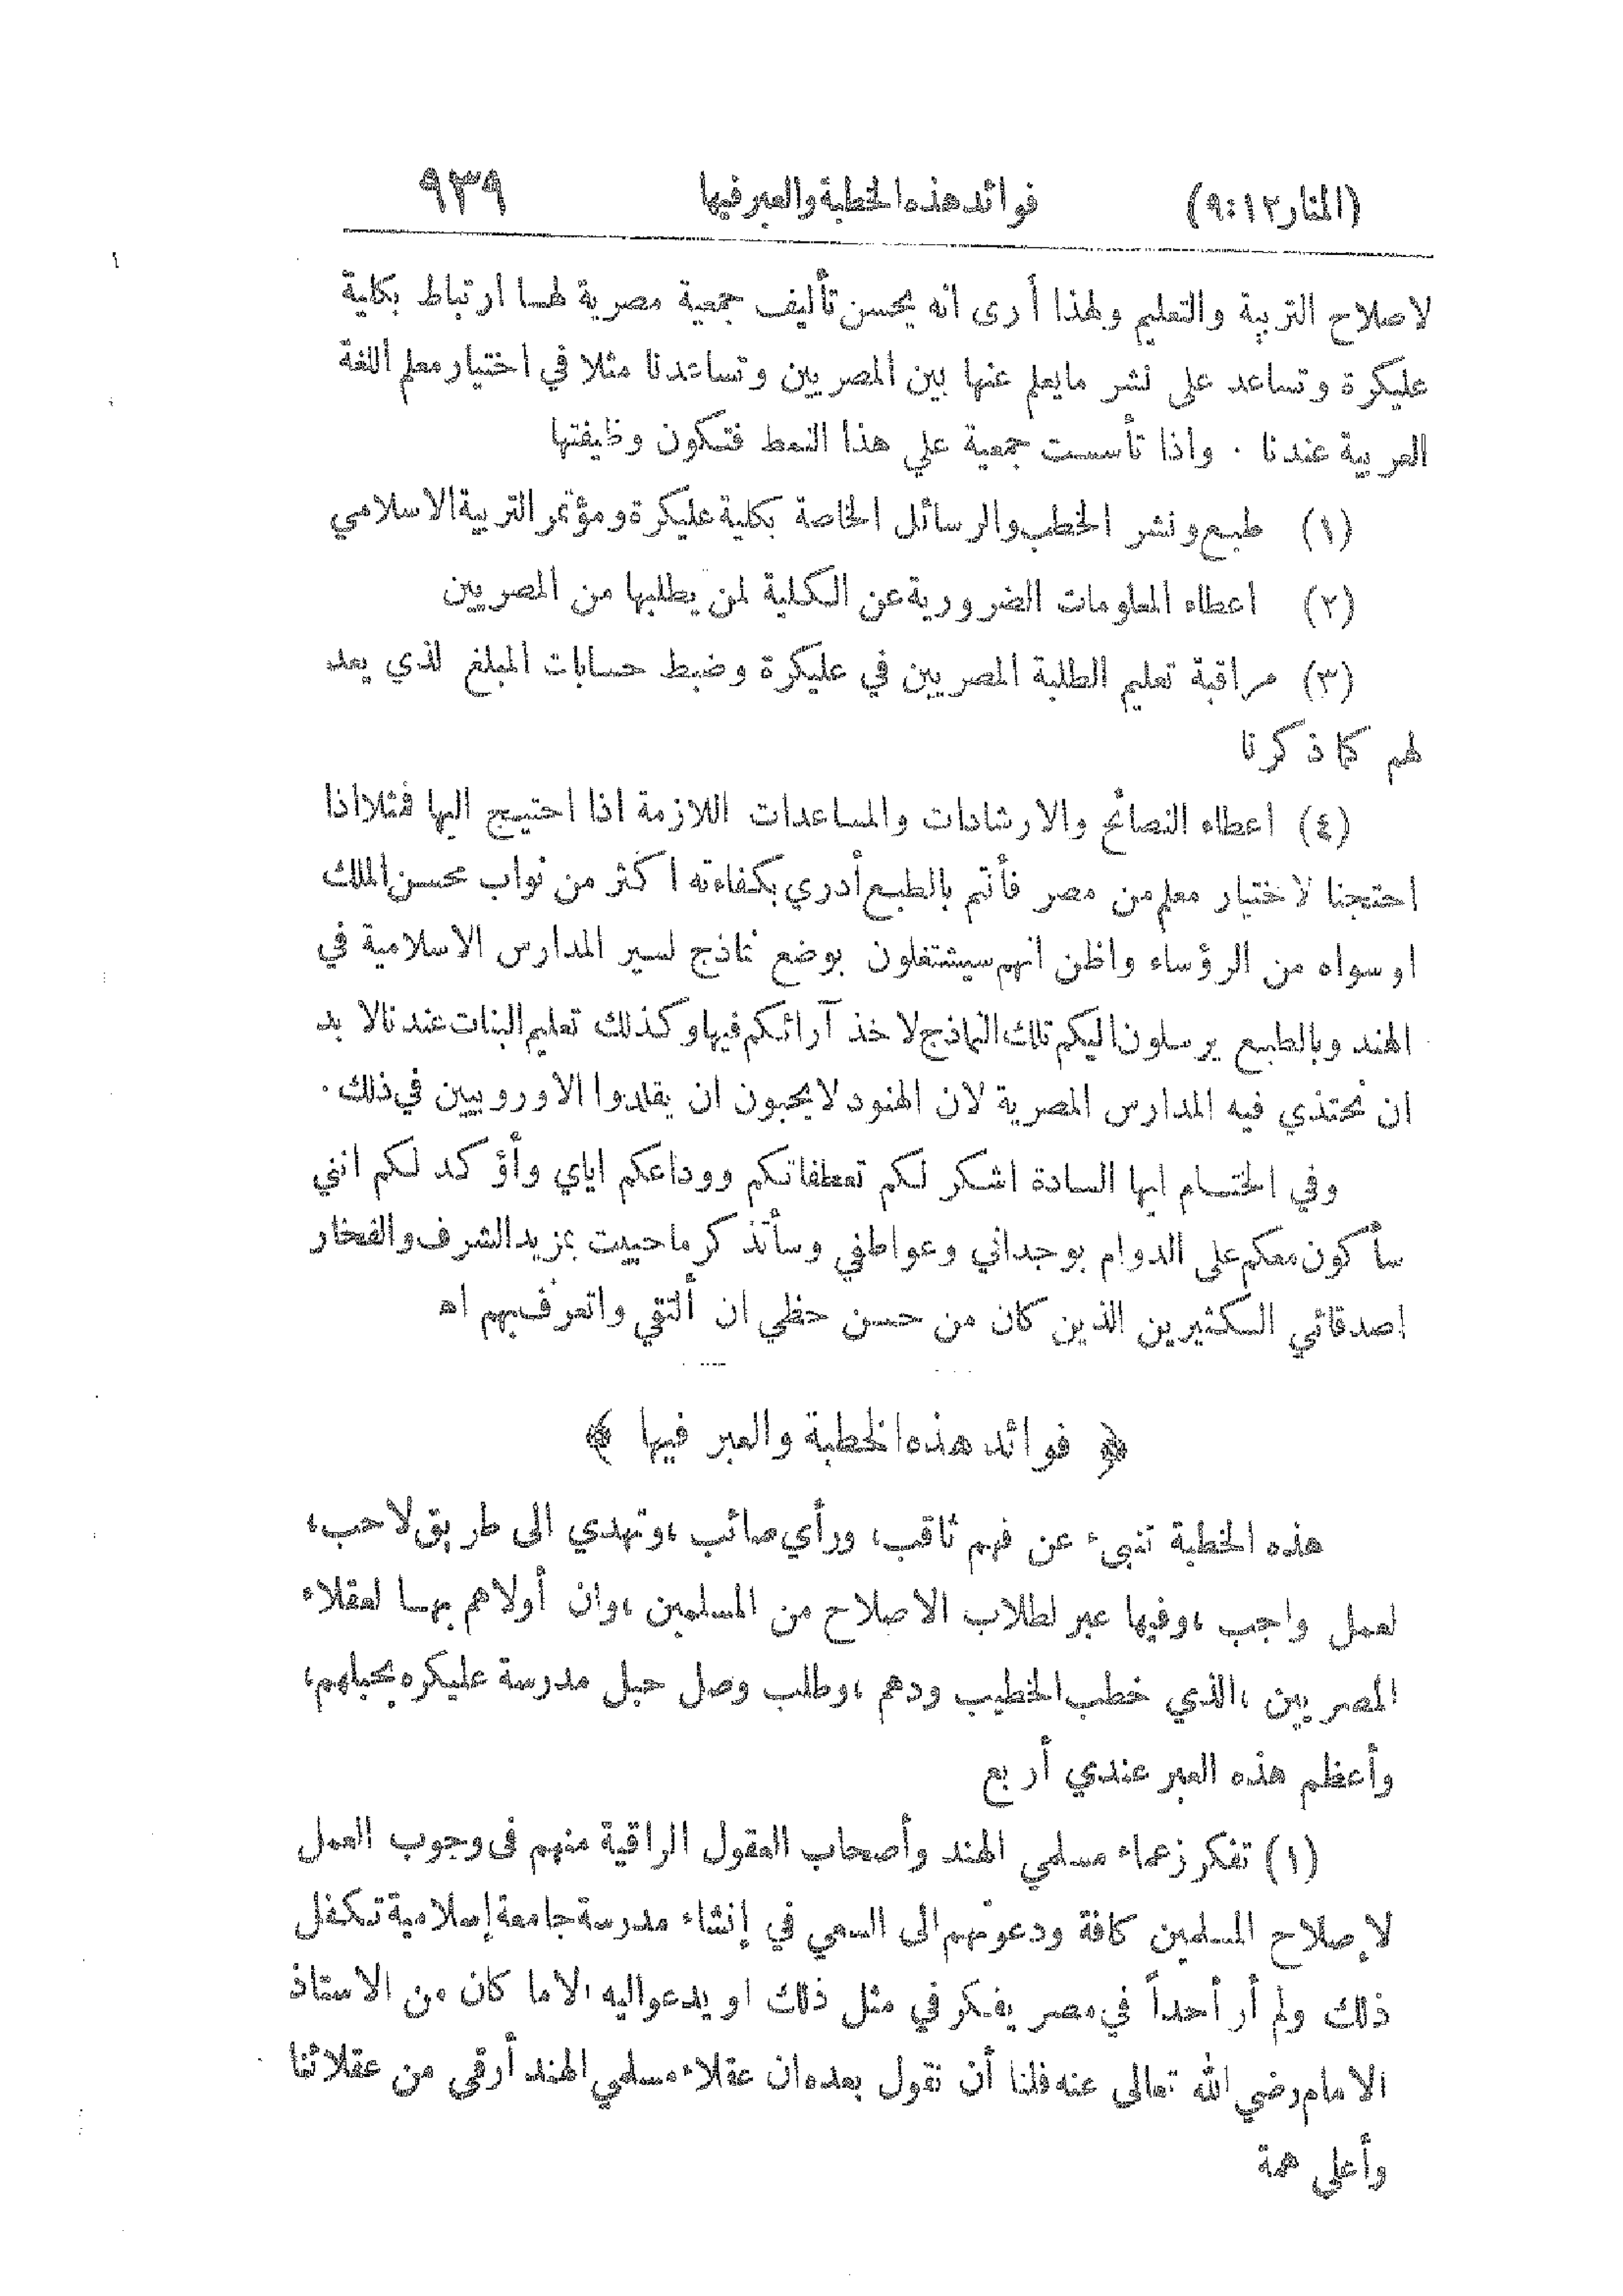 (المنار ١٢:٩) فوائد هذه الخطبة والعبر فيها ٩٣٩
لاصلاح التربية والتعليم ولهذا أرى انه يحسن تأليف جمعية مصرية لهـا ارتباط بكلية
عليكرة وتساعد على نشر مايعلم عنها بين المصريين وتساعدنا مثلا في اختيار معلم اللغة
العربية عندنا . واذا تأسست جمعية على هذا النمط فتكون وظيفتها
(١) طبع ونشر الخطب والرسائل الخاصة بكلية عليكرة ومؤتمر التربية الاسلامي
(٢) اعطاء المعلومات الضرورية عن الكلية لمن يطلبها من المصريين
(٣) مراقبة تعليم الطلبة المصريين في عليكرة وضبط حسابات المبلغ لذي يعد
لهم كما ذكرنا
(٤) اعطاء النصائح والارشادات والمساعدات اللازمة اذا احتيج اليها فمثلا اذا
احتجنا لاختيار معلم من مصر فأنتم بالطبع أدري بكفاءته اكثر من نواب محسن الملك
او سواه من الرؤساء واظن انهم سيشتغلون بوضع نماذج لسير المدارس الاسلامية في
الهند وبالطبع يرسلون اليكم تلك النماذج لاخذ آرائكم فيها وكذلك تعليم البنات عندنا لا بد
ان نحتذي فيه المدارس المصرية لان الهنود لا يحبون ان يقلدوا الاوروبيين في ذلك .
وفي الختـام ايها السادة اشكر لكم تعطفاتكم ووداعكم اياي وأؤكد لكم انني
سأكون معكم على الدوام بوجداني وعواطفي وسأتذكر ما حييت بمزيد الشرف والفخار
اصدقائي الكثيرين الذين كان من حسن حظي ان ألتقي واتعرف بهم اه
﴿ فوائد هذه الخطبة والعبر فيها ﴾
هذه الخطبة تنبئ عن فهم ثاقب، ورأي صائب، وتهدي الى طريق لاحب،
لعمل واجب، وفيها عبر لطلاب الاصلاح من المسلمين، وان أولاهم بهـا لعقلاء
المصريين، الذي خطب الخطيب ودهم، وطلب وصل حبل مدرسة عليكره بحبلهم،
وأعظم هذه العبر عندي أربع
(١) تفكر زعماء مسلمي الهند وأصحاب العقول الراقية منهم فى وجوب العمل
لإصلاح المسلمين كافة ودعوتهم الى السعي في إنشاء مدرسة جامعة إسلامية تكفل
ذلك ولم أر أحداً في مصر يفكر في مثل ذلك او يدعو اليه الا ما كان من الاستاذ
الامام رضي الله تعالى عنه فلنا أن نقول بعده ان عقلاء مسلمي الهند أرقى من عقلائنا
وأعلى همة